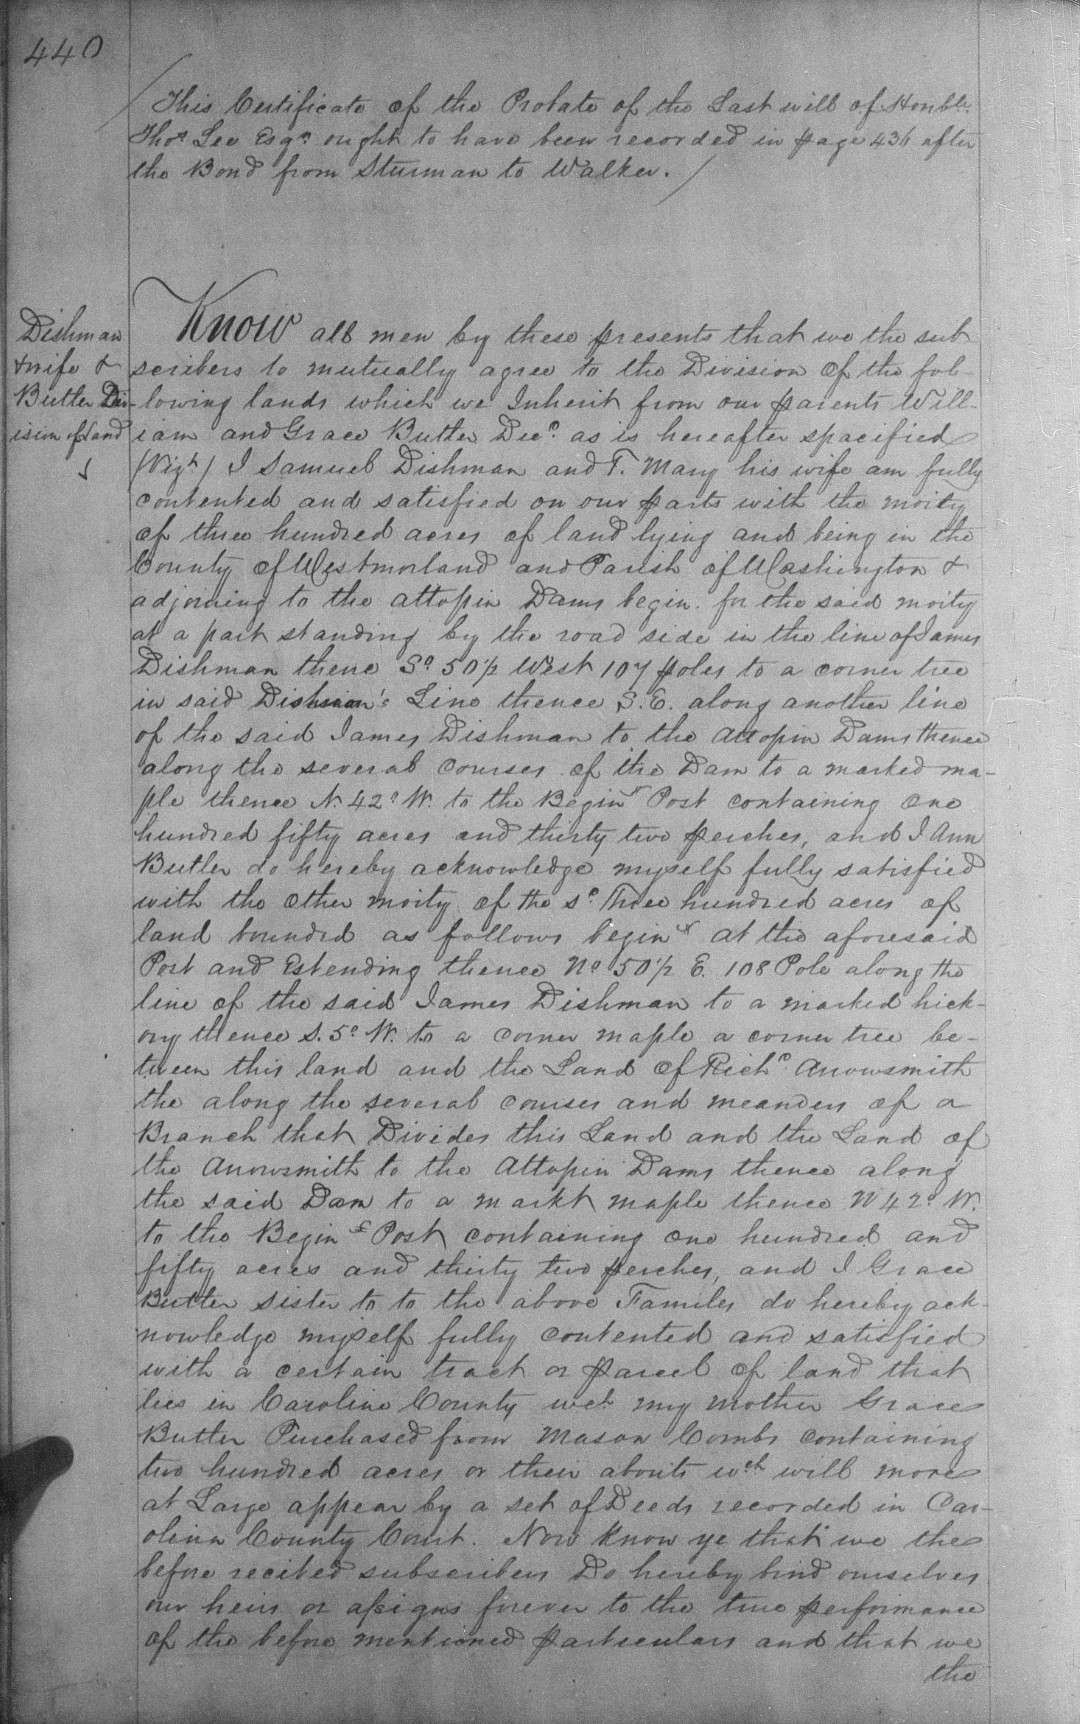 440
This Certificate of the Probate of the Last will of Honble.
Thos Lee Esqr. ought to have been recorded in page 436 after
the Bond from Sturman to Walker.
Dishman
& wife &
Butler Div-
ision of Land
Know all men by these presents that we the sub
scribers to mutually agree to the Division of the fol-
lowing lands which we Inherit from our parents Will-
iam and Grace Butler Decd. as is hereafter spacified
(Vizt) I Samuel Dishman and T. Mary his wife am fully
contented and satisfied on our parts with the moity
of three hundred acres of land lying and being in the
County of Westmorland and Parish of Washington &
adjoining to the attopin Dams begin. for the said moity
at a part standing by the road side in the line of James
Dishman thene So. 50 1/2 West 107 poles to a corner tree
in said Dishman's Line thence S.E. along another line
of the said James Dishman to the attopin Dams thence
along the several courses of the Dam to a marked ma-
ple thence N. 42° W. to the Beging Post containing one
hundred fifty acres and thirty two perches, and I Ann
Butler do hereby acknowledge myself fully satisfied
with the other moity of the sd. Three hundred acres of
land bounded as follows beging at the aforesaid
Post and Extending thence No 50 1/2 E. 108 Pole along the
line of the said James Dishman to a marked hick-
ory thence S. 5° W. to a corner maple a corner tree be-
tween this land and the Land of Richd. Arrowsmith
the along the several courses and meanders of a
Branch that Divides this Land and the Land of
the Arrowsmith to the Attopin Dams thence along
the said Dam to a markt maple thence N 42° W.
to the Beging Post containing one hundred and
fifty acres and thirty two perches, and I Grace
Butler sister to to the above Familes do hereby ack-
nowledge myself fully contented and satisfied
with a certain tract or parcel of land that
lies in Caroline County wch. my mother Grace
Butler Purchased from Mason Combs containing
two hundred acres or their abouts wch will more
at Large appear by a set of Deeds recorded in Car-
olina County Court. Now know ye that we the
before recited subscribers Do hereby bind ourselves
our heirs or assigns forever to the true performance
of the before mentioned particulars and that we
the